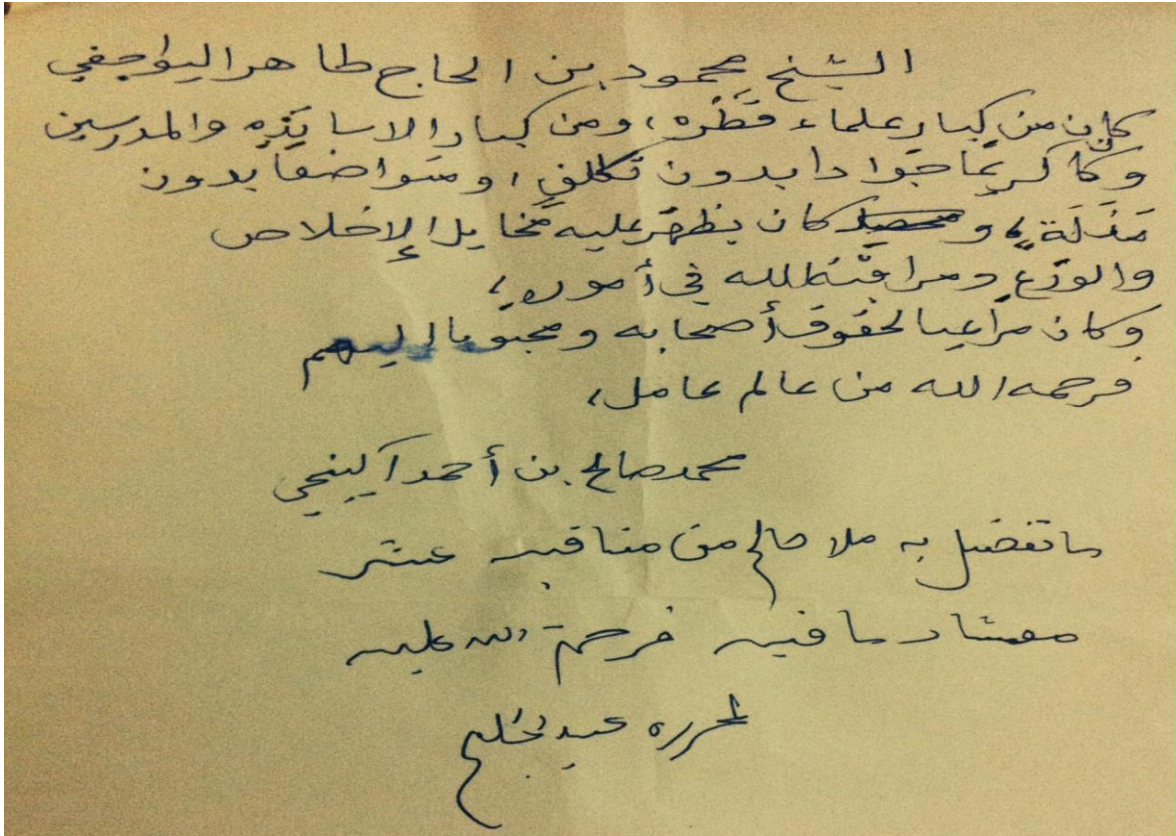 الشيخ محمود بن الحاج طاهر اليواجفي
كان من كبار علماء قطره، ومن كبار الاساتذه والمدرسين
وكا كريما جوادا بدون تكلف، ومتواضعا بدون
مذلة، و كان يظهر عليه مخايل الإخلاص
والورع ومراقبته لله في أموره،
وكان مراعيا لحقوق أصحابه ومحبوبا إليهم
فرحمه الله من عالم عامل،
محمد صالح بن أحمد
ما تفضل به ملا صالح من مناقبه عشر
معشار ما فيه فرحمة الله عليه
لمحرره